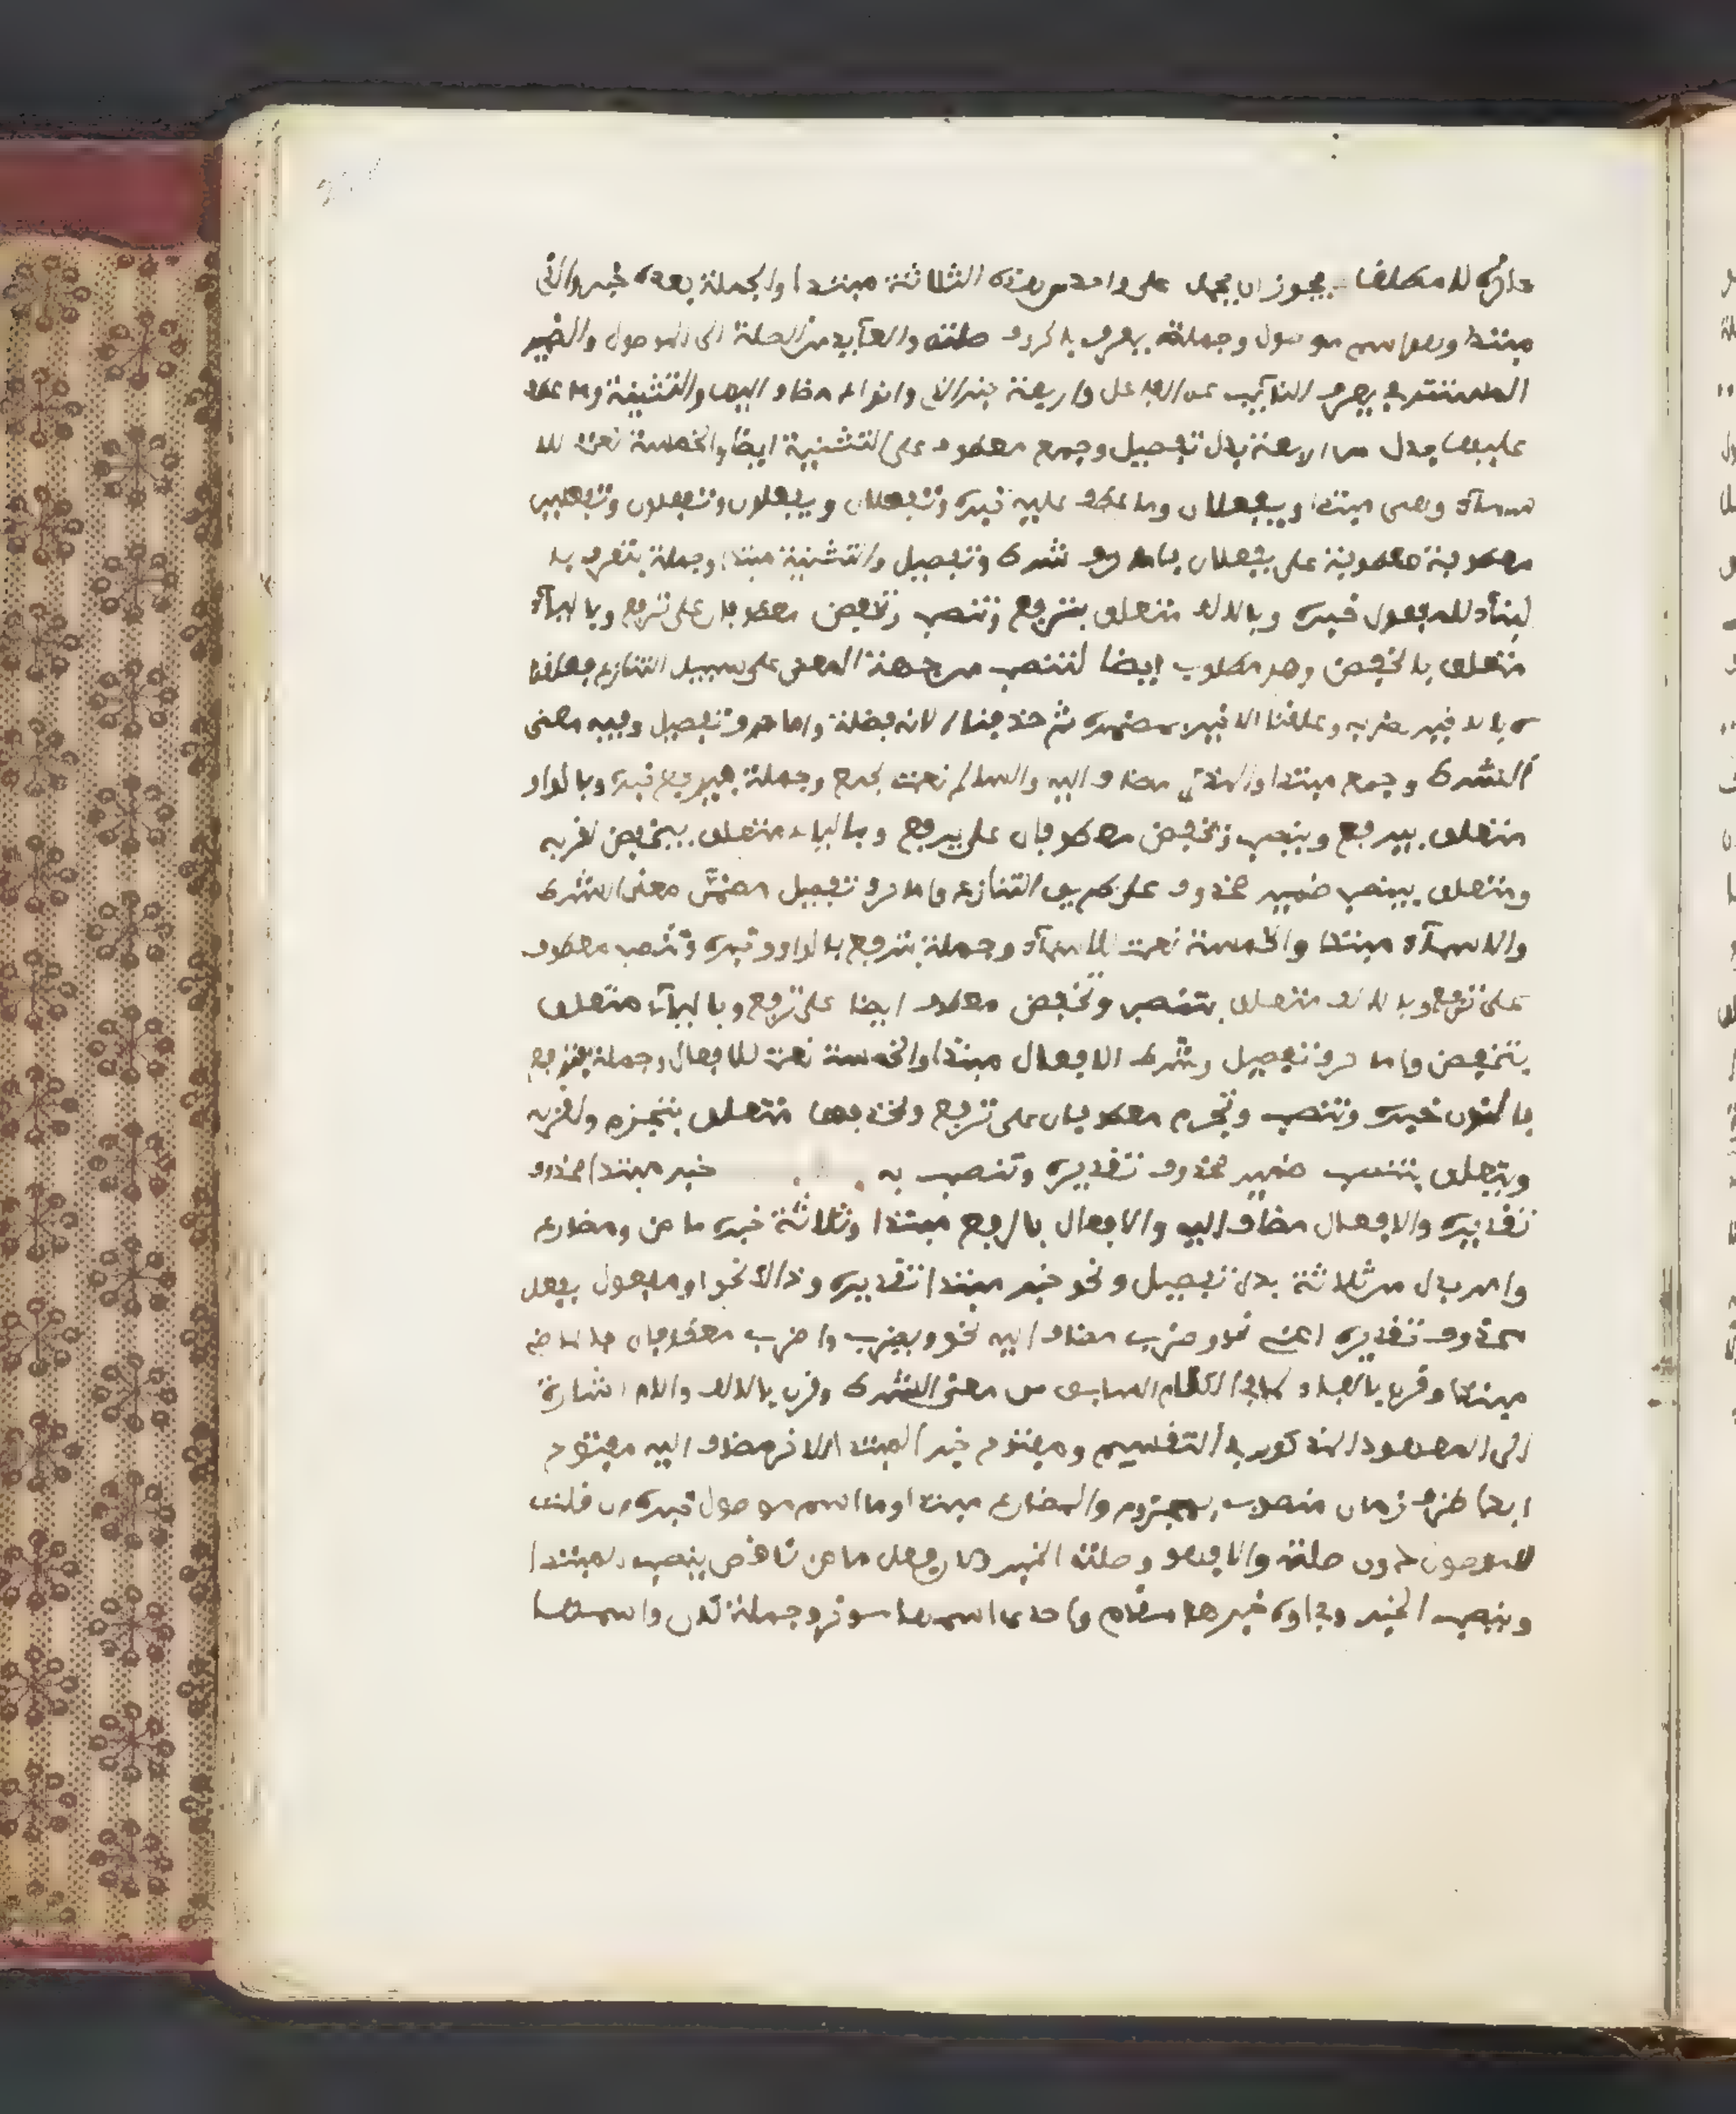 يجوز ان يجعل على واحد من هذه الثلاثة مبتدا والجملة بعده خبر والتي
مبتدا وهو اسم موصول وجملة يعرب بالحروف صلته والعآيد من الصلة الى الموصول والضمير
المستتر في يعرب النآيب عن الفاعل واربعة خبر التي وانواع مضاف اليها والتثنية وما عطف
عليها بدل من اربعة بدل تفصيل وجمع معطوف على التثنية ايضا والخمسة نعت للا
سمآء وهي مبتدا ويفعلان وما عطف عليه خبره وتفعلان ويفعلون وتفعلون وتفعلين
معطوفة على يفعلان فاما حرف شرط وتفصيل والتثنية مبتدا وجملة تعرف با
لبنآء للمفعول خبره وبالالف متعلق بترفع وتنصب وتخفض معطوفان على ترفع وباليآء
متعلق بالخفض وهو مطلوب ايضا لتنصب من جهة المعنى على سبيل التنازع فعلقنا
ه بالاخير لقربه وعلقنا الاخير بضميره ثم حذفناه لانه فضلة واما حرف تفصيل وفيه معنى
الشرط وجمع مبتدا والمذكر مضاف اليه والسالم نعت لجمع وجملة فيرفع خبره وبالواو
متعلق بيرفع وينصب ويخفض معطوفان على يرفع وبالياء متعلق بيخفض لقربه
ومتعلق بينصب ضمير محذوف على طريق التنازع واما حرف تفصيل مضمن معنى الشرط
والاسمآء مبتدا والخمسة نعت للاسمآء وجملة فترفع بالواو خبره وتنصب معطوف
على ترفع وبالالف متعلق بتنصب وتخفض معطوف ايضا على ترفع وباليآء متعلق
بتخفض واما حرف تفصيل وشرط الافعال مبتدا والخمسة نعت للافعال وجملة فترفع
بالنون خبره وتنصب وتجزم معطوفان على ترفع وبحذفها متعلق بتجزم ولقربه
ويتعلق بتنصب ضمير محذوف تقديره وتنصب به خبر مبتدا محذوف
تقديره والافعال مضاف اليه والافعال بالرفع مبتدا وثلاثة خبره ماض ومضارع
وامر بدل من ثلاثة بدل تفصيل ونحو خبر مبتدا تقديره وذالك نحو او مفعول بفعل
محذوف تقديره اعني نحو وضرب مضاف اليه نحو ويضرب واضرب معطوفان فالماضي
مبتدا وقرن بالفاء لما في الكلام السابق من معنى الشرط وقرن بالالف والام اشارة
الى المعهود المذكور في التقسيم ومفتوح خبر المبتدا الاخر مضاف اليه مفتوح
ابدا ظرف زمان منصوب بمفتوح والمضارع مبتدا وما اسم موصول خبره كان قلت
الموصول دون صلته والا فهو وصلته الخبر كان فعل ماض ناقص ينصب المبتدا
وينصب الخبر وفي اوله خبرها مقدم واحدى اسمها موخر وجملة كان واسمها